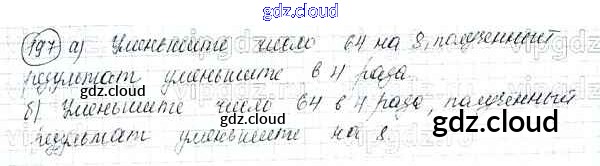 gdz.cloud
197 а) Уменьшите число 64 на 8, полученный
результат уменьшите в 4 раза.
gdz.cloud
б) Уменьшите число 64 в 4 раза, полученный
gdz.cloud
результат уменьшите на 8.
gdz.cloud